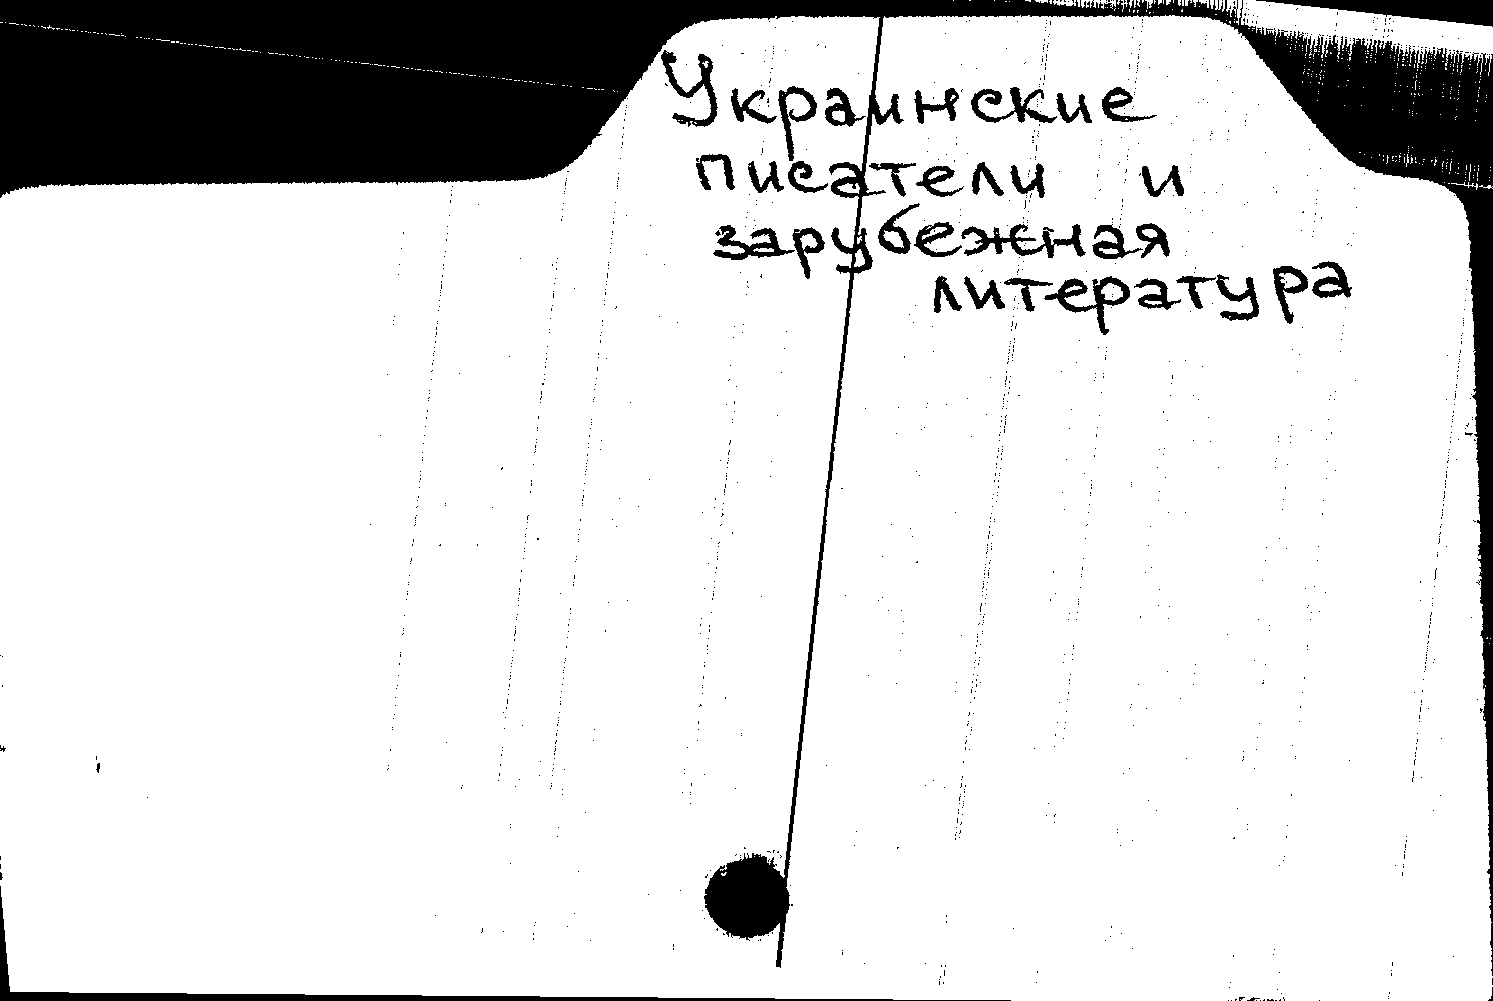 Украинские
писатели и
зарубежная
литература